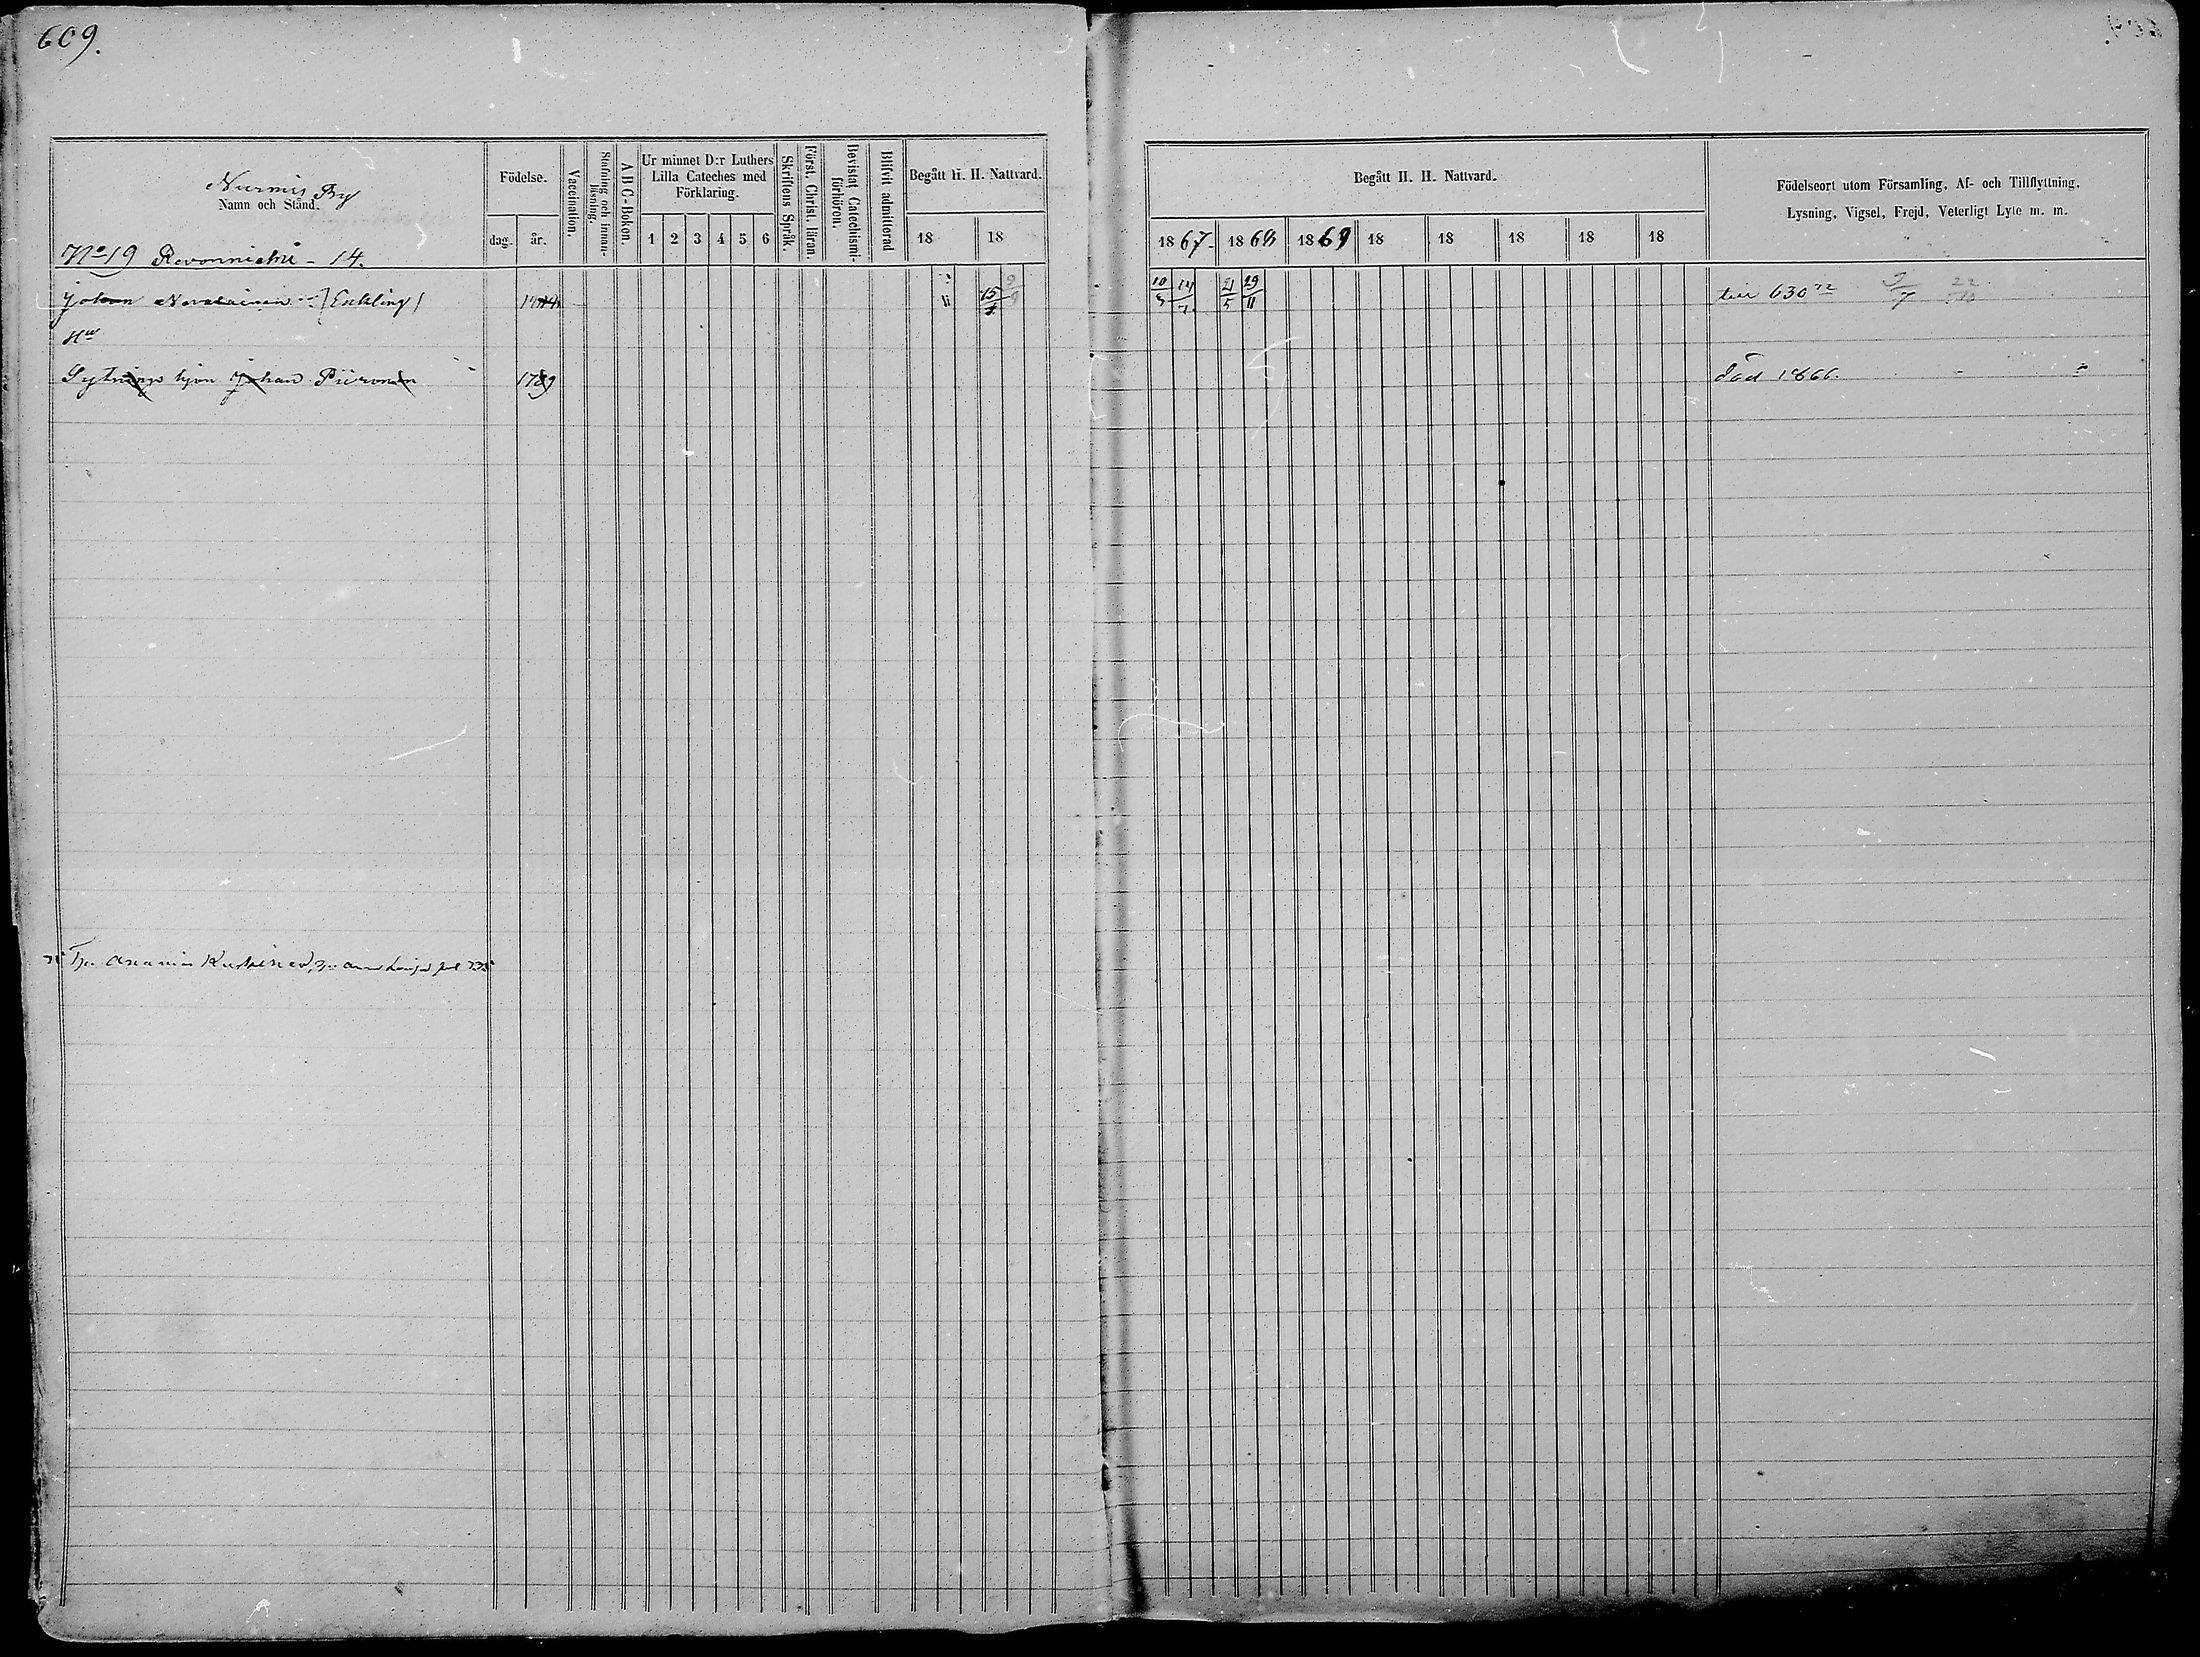 609.
Nurmis By
Namn och Stånd.
Födelse.
dag. år.
Vaccination.
Stafning och innan-läsning.
A B C-Boken.
Ur minnet D:r Luthers
Lilla Cateches med
Förklaring.
1 2 3 4 5 6
Skriftens Språk.
Först. Christ. läran.
Bevistat Catechismi-förhören.
Blifvit admitterad
Begått H. H. Nattvard.
18 18
Begått H. H. Nattvard.
1867. 1868 1869 18 18 18 18 18
Födelseort utom Församling, Af- och Tillflyttning.
Lysning, Vigsel, Frejd, Veterligt Lyte m. m.
No 19 14.
Johan (Enkling) 15 10 14 7. 21/5 29/11 630
Hu
Sytnings hjon Johan Piironen 1789 Död 1866.